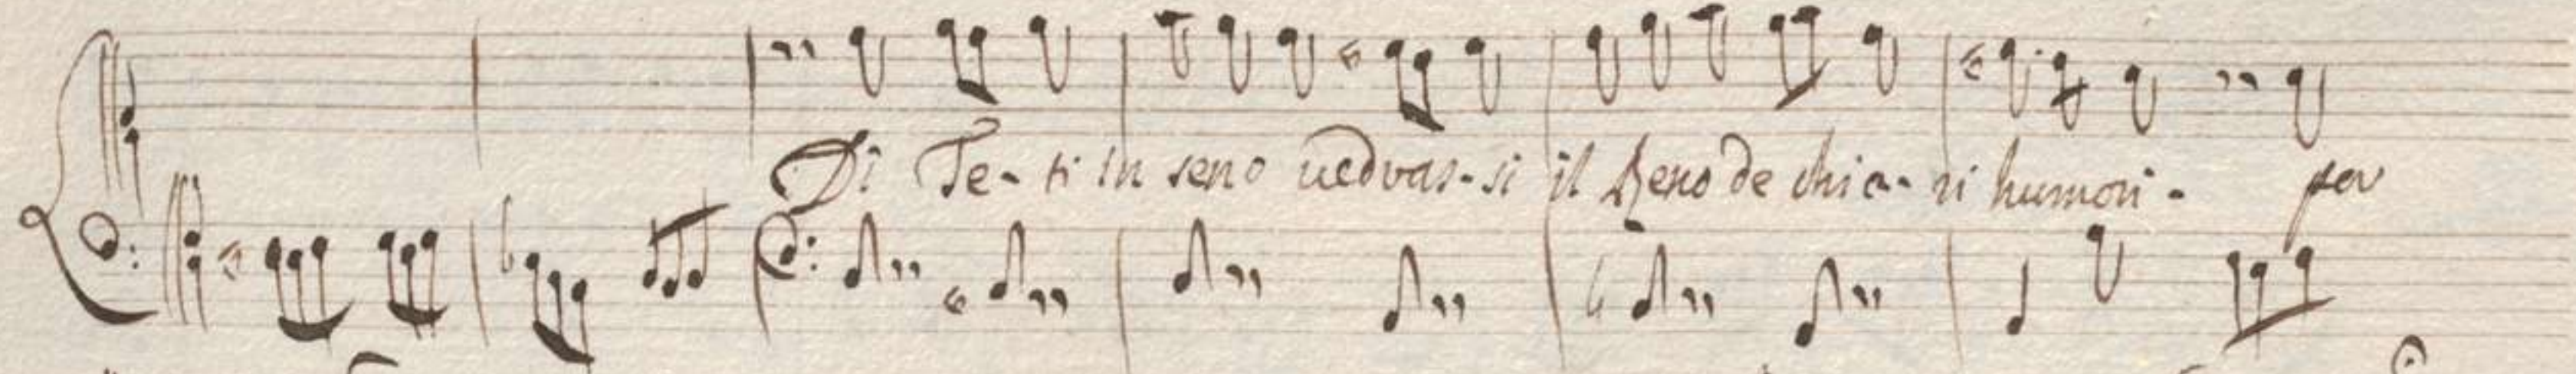 Di Te- ti in seno uedras- si il Reno de chia- ri humori- per